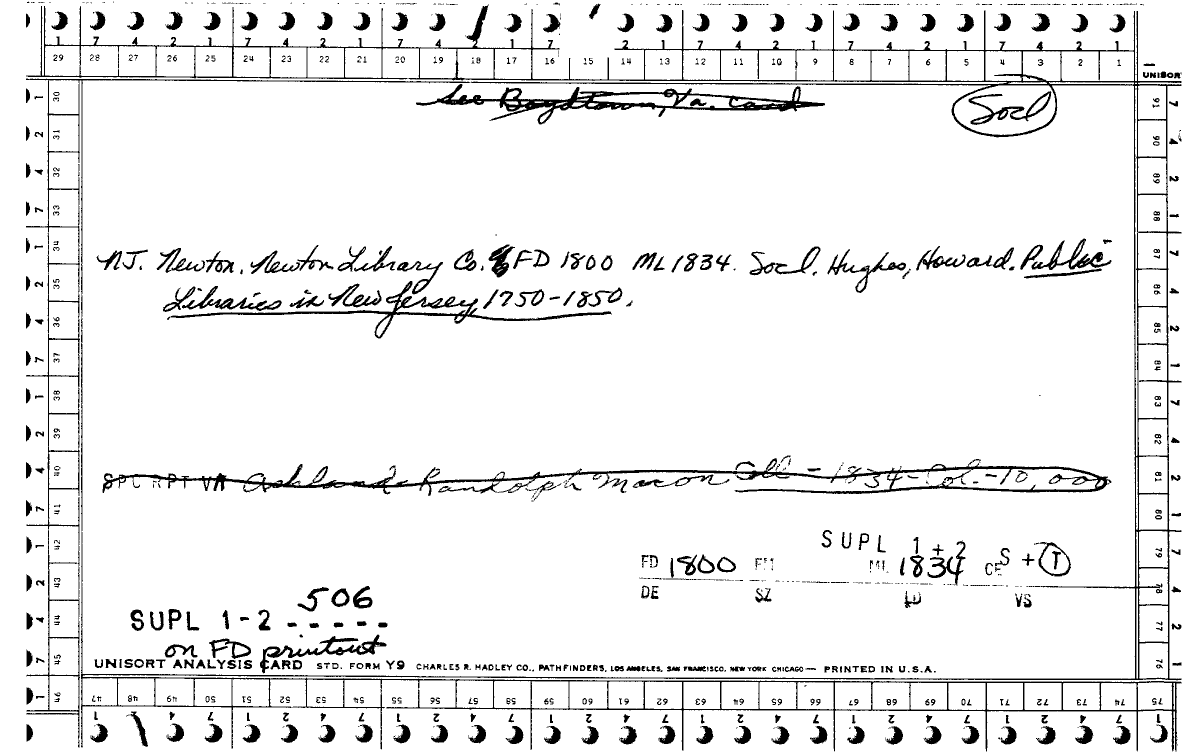 7 4 2 1 7 4 2 1 7 4 2 1 7 2 1 7 4 2 1 7 4 2 1 7 4 2 1
29 28 27 26 25 24 23 22 21 20 19 18 17 16 15 14 13 12 11 10 9 8 7 6 5 4 3 2 1
UNISORT
See Boydtown, Va. card
Socl
NJ. Newton. Newton Library Co. FD 1800 ML 1834. Socl. Hughes, Howard. Public
Libraries in New Jersey, 1750-1850.
SPC RPT VA Ashland Randolph Macon Coll - 1834 - Col. - 10,000
SUPL 1 + 2
FD 1800 EM ML 1834 CE S + T
DE SZ LD VS
506
SUPL 1-2 - - - - -
on FD printout
UNISORT ANALYSIS CARD STD. FORM Y9 CHARLES R. HADLEY CO., PATHFINDERS, LOS ANGELES, SAN FRANCISCO, NEW YORK CHICAGO — PRINTED IN U.S.A.
30 31 32 33 34 35 36 37 38 39 40 41 42 43 44 45 46
91 90 89 88 87 86 85 84 83 82 81 80 79 78 77 76 75
47 48 49 50 51 52 53 54 55 56 57 58 59 60 61 62 63 64 65 66 67 68 69 70 71 72 73 74